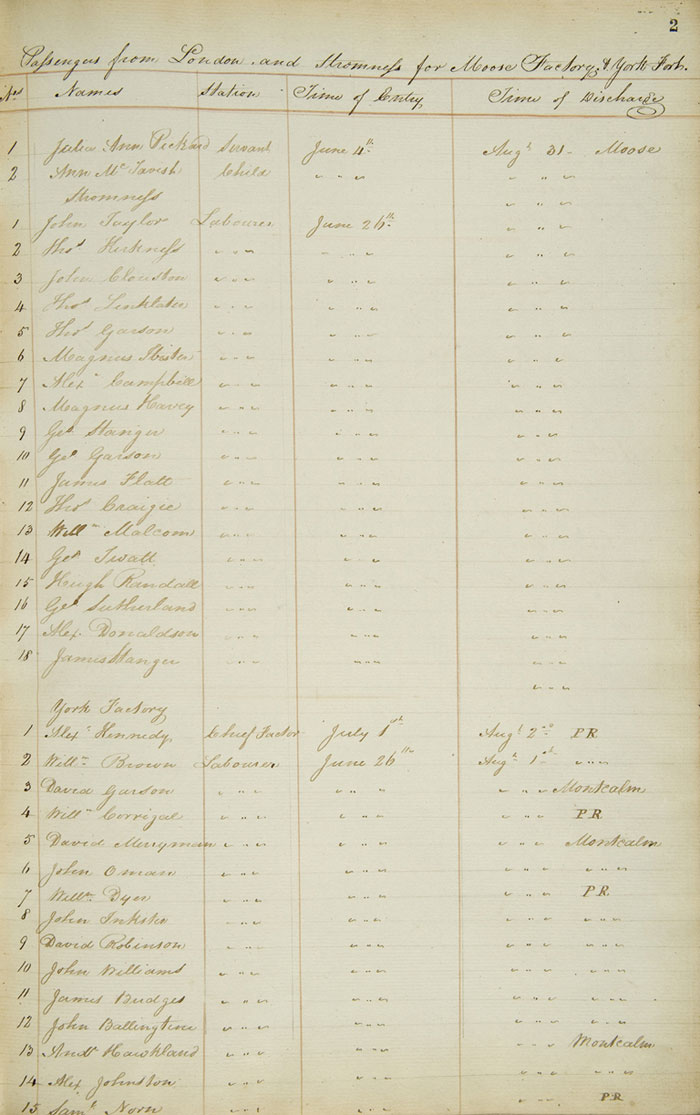 2
Passengers from London and Stromness for Moose Factory & York Fort.
Nos Names Station Time of Entry Time of Discharge
1 Julia Ann Pickard Servant June 4th Augt 31 - Moose
2 Ann McTavish Child " " " " " "
Stromness " " "
1 John Taylor Labourer June 26th " " "
2 Thos Kirkness " " " " " " " " "
3 John Clouston " " " " " " " " "
4 Thos Linklater " " " " " " " " "
5 Thos Garson " " " " " " " " "
6 Magnus Isbister " " " " " " " " "
7 Alexr Campbell " " " " " " " " "
8 Magnus Harvey " " " " " " " " "
9 Geo Stanger " " " " " " " " "
10 Geo Garson " " " " " " " " "
11 James Flatt " " " " " " " " "
12 Thos Craigie " " " " " " " " "
13 Willm Malcom " " " " " " " " "
14 Geo Twatt " " " " " " " " "
15 Hugh Randall " " " " " " " " "
16 Geo Sutherland " " " " " " " " "
17 Alex. Donaldson " " " " " " " " "
18 James Stanger " " " " " " " " "
" " "
York Factory
1 Alexr Kennedy Chief Factor July 1st Augt 2nd PR
2 Willm Brown Labourer June 26th Augt 1st " " "
3 David Garson " " " " " " " " " Montcalm
4 Willm Corrigal " " " " " " " " " PR
5 David Merryman " " " " " " " " " Montcalm
6 John Oman " " " " " " " " " " " "
7 Willm Dyer " " " " " " " " " PR
8 John Inkster " " " " " " " " " " " "
9 David Robinson " " " " " " " " " " " "
10 John Williams " " " " " " " " " " " "
11 James Budges " " " " " " " " " " " "
12 John Ballingtine " " " " " " " " " " " "
13 Andw " " " " " " " " " Montcalm
14 Alex Johnston " " " " " " " " " " " "
15 Saml Norn " " " " " " " " " PR